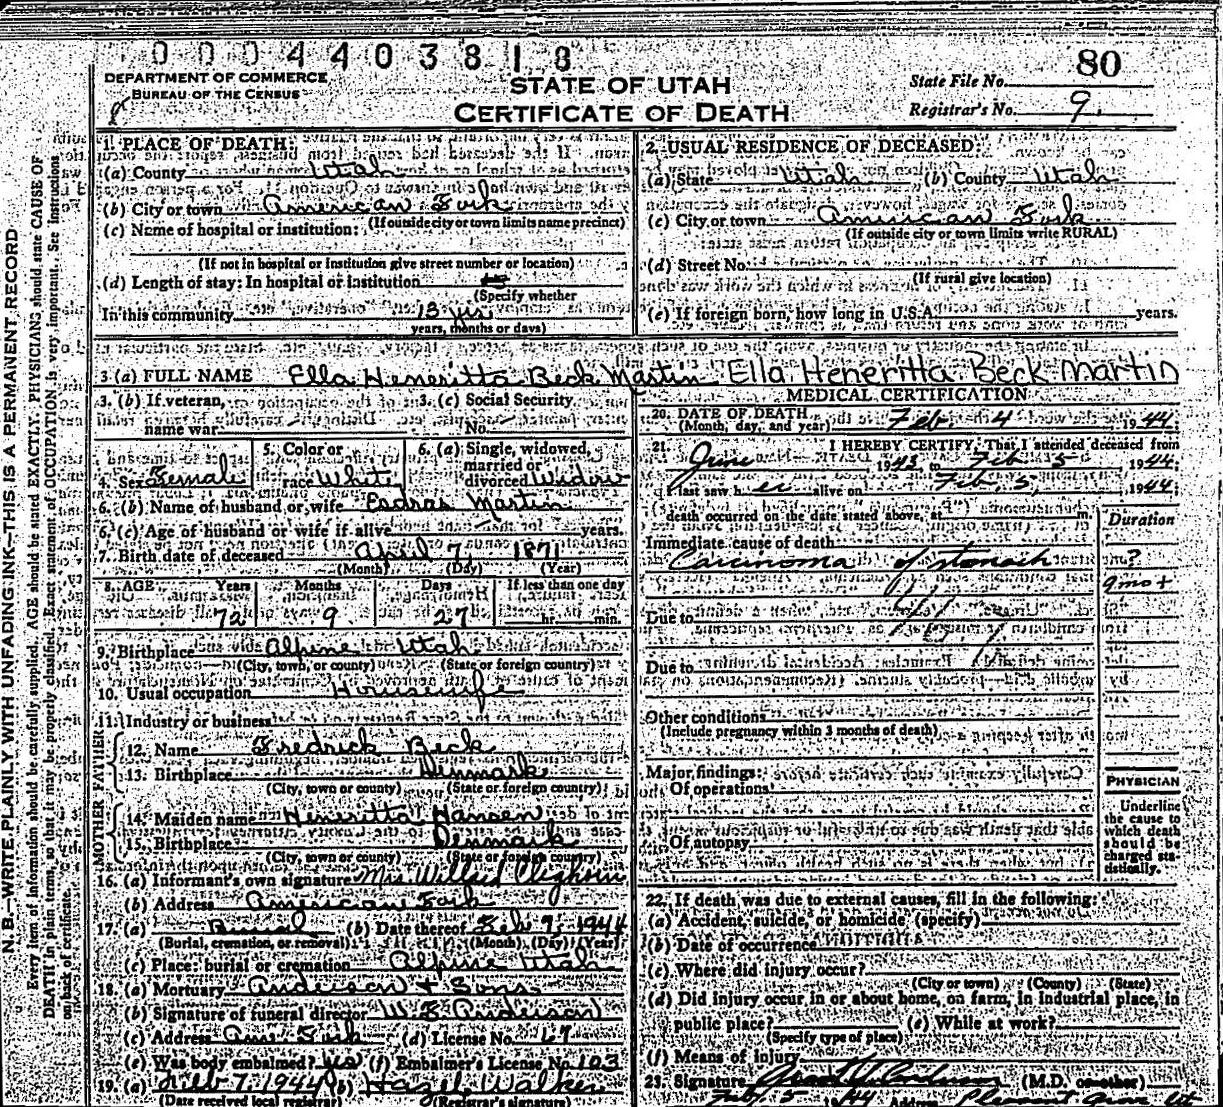 0004403818
DEPARTMENT OF COMMERCE
BUREAU OF THE CENSUS
STATE OF UTAH
CERTIFICATE OF DEATH
State File No. 80
Registrar's No. 9.
N. B.—WRITE PLAINLY WITH UNFADING INK—THIS IS A PERMANENT RECORD
Every item of information should be carefully supplied. AGE should be stated EXACTLY. PHYSICIANS should state CAUSE OF
DEATH in plain terms, so that it may be properly classified. Exact statement of OCCUPATION is very important. See instructions
on back of certificate.
1. PLACE OF DEATH:
(a) County Utah
(b) City or town American Fork
(If outside city or town limits name precinct)
(c) Name of hospital or institution:
(If not in hospital or institution give street number or location)
(d) Length of stay: In hospital or institution
(Specify whether
In this community 13 yrs
years, months or days)
2. USUAL RESIDENCE OF DECEASED:
(a) State Utah (b) County Utah
(c) City or town American Fork
(If outside city or town limits write RURAL)
(d) Street No.
(If rural give location)
(e) If foreign born, how long in U.S.A. years.
3 (a) FULL NAME Ella Heneritta Beck Martin Ella Heneritta Beck Martin
3. (b) If veteran, 3. (c) Social Security
name war No.
4. Sex Female 5. Color or race White 6. (a) Single, widowed, married or divorced Widow
6. (b) Name of husband or wife Esdras Martin
6. (c) Age of husband or wife if alive years.
7. Birth date of deceased April 7, 1871
(Month) (Day) (Year)
8. AGE Years Months Days If less than one day
72 9 27 hr. min.
9. Birthplace Alpine Utah
(City, town, or county) (State or foreign country)
10. Usual occupation Housewife
11. Industry or business
FATHER
12. Name Fredrick Beck
13. Birthplace Denmark
(City, town or county) (State or foreign country)
MOTHER
14. Maiden name Heneritta Hansen
15. Birthplace Denmark
(City, town or county) (State or foreign country)
16. (a) Informant's own signature Mrs Willard Cleghorn
(b) Address American Fork
17. (a) Burial (b) Date thereof Feb 7, 1944
(Burial, cremation, or removal) (Month) (Day) (Year)
(c) Place: burial or cremation Alpine Utah
18. (a) Mortuary Anderson & Sons
(b) Signature of funeral director W. E. Anderson
(c) Address Am. Fork (d) License No. 67
(e) Was body embalmed? Yes (f) Embalmer's License No. 103
19. (a) Feb 7, 1944 (b) Hazel Walker
(Date received local registrar) (Registrar's signature)
MEDICAL CERTIFICATION
20. DATE OF DEATH Feb. 4 1944
(Month, day, and year)
21. I HEREBY CERTIFY, That I attended deceased from
June 1943 to Feb 5 1944
I last saw her alive on Feb. 5, 1944
death occurred on the date stated above, at m.
Duration
Immediate cause of death
Carcinoma of stomach ?
9 mo +
Due to
Due to
Other conditions
(Include pregnancy within 3 months of death)
Major findings:
Of operations
Of autopsy
PHYSICIAN
Underline
the cause to
which death
should be
charged sta-
tistically.
22. If death was due to external causes, fill in the following:
(a) Accident, suicide, or homicide (specify)
(b) Date of occurrence
(c) Where did injury occur?
(City or town) (County) (State)
(d) Did injury occur in or about home, on farm, in industrial place, in
public place? (e) While at work?
(Specify type of place)
(f) Means of injury
23. Signature (M.D. or other)
Feb. 5 1944 Address Pleasant Grove Ut